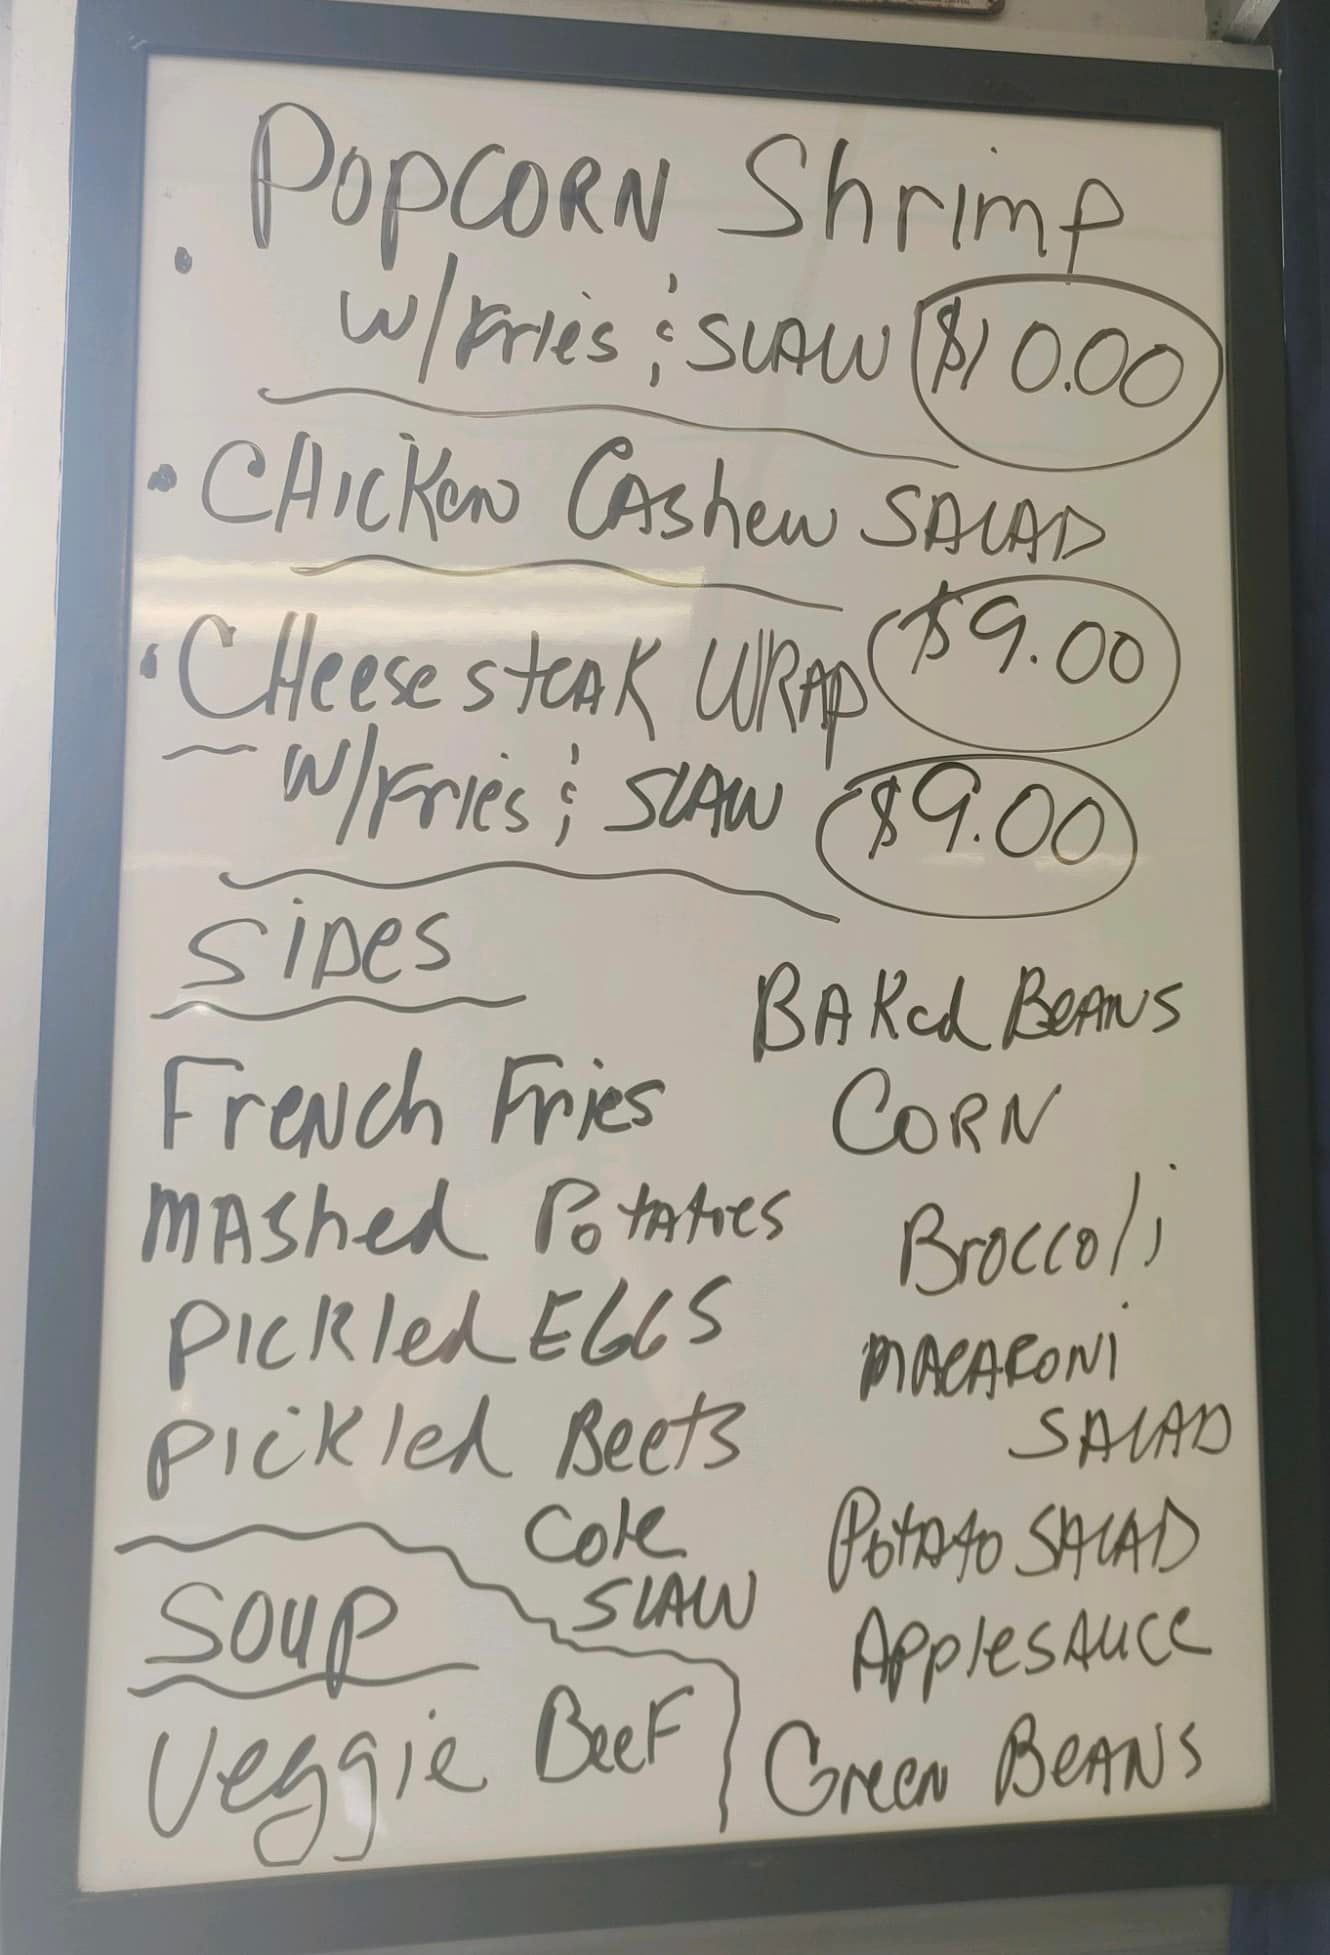 POPCORN Shrimp
• W/Fries & SLAW $10.00
• CHICKen CAshew SALAD
$9.00
• CHeese steAK WRAP
W/Fries & SLAW $9.00
SIDes
French Fries
MAShed PotAtoes
PICKled EGGS
PICKled Beets
Cole
SLAW
BAKed BeANS
CORN
Broccoli
MACARONI
SALAD
PotAto SALAD
ApplesAuce
Green BeANS
SOUP
Veggie BeeF